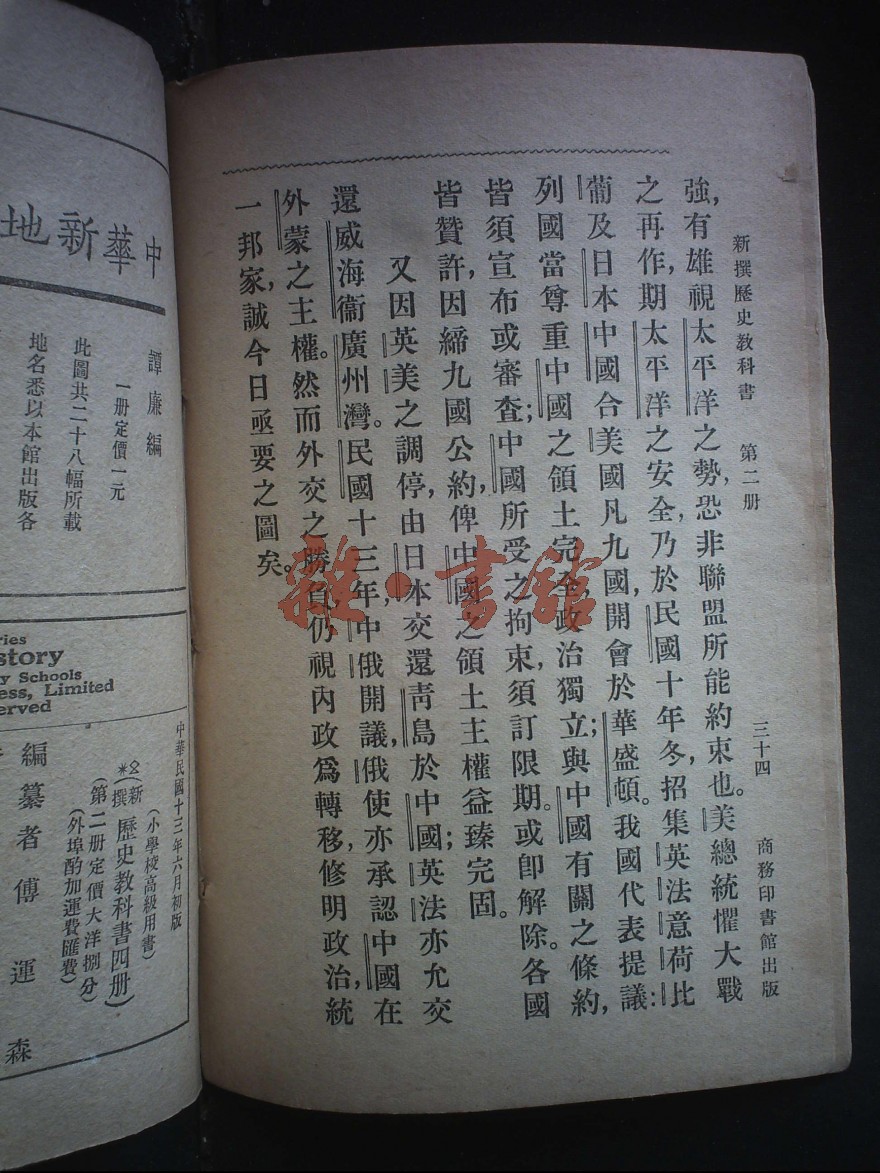 新撰歷史教科書 第二册 三十四 商務印書館出版
強,有雄視太平洋之勢,恐非聯盟所能約束也。美總統懼大戰
之再作,期太平洋之安全,乃於民國十年冬,招集英法意荷比
葡及日本中國合美國凡九國,開會於華盛頓。我國代表提議:
列國當尊重中國之領土完全政治獨立;與中國有關之條約,
皆須宣布或審查;中國所受之拘束,須訂限期。或卽解除。各國
皆贊許,因締九國公約,俾中國之領土主權益臻完固。
又因英美之調停,由日本交還靑島於中國;英法亦允交
還威海衞廣州灣。民國十三年,中俄開議,俄使亦承認中國在
外蒙之主權。然而外交之勝負,仍視內政爲轉移,修明政治,統
一邦家,誠今日亟要之圖矣。
雜·書館
中華新地
譚廉編
一册定價一元
此圖共二十八幅所載
地名悉以本館出版各
ries
story
y Schools
ess, Limited
erved
中華民國十三年六月初版
(小學校高級用書)
(新撰歷史教科書四册)
(第二册定價大洋捌分)
(外埠酌加運費匯費)
編纂者傅運森